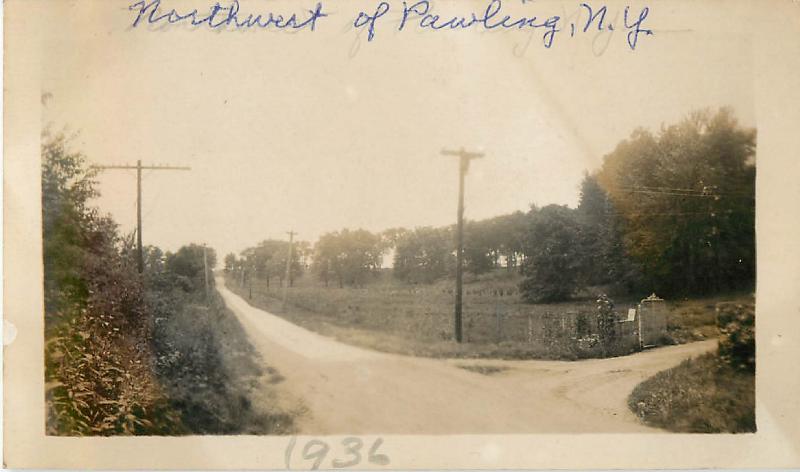 Northwest of Pawling, N.Y.
1936